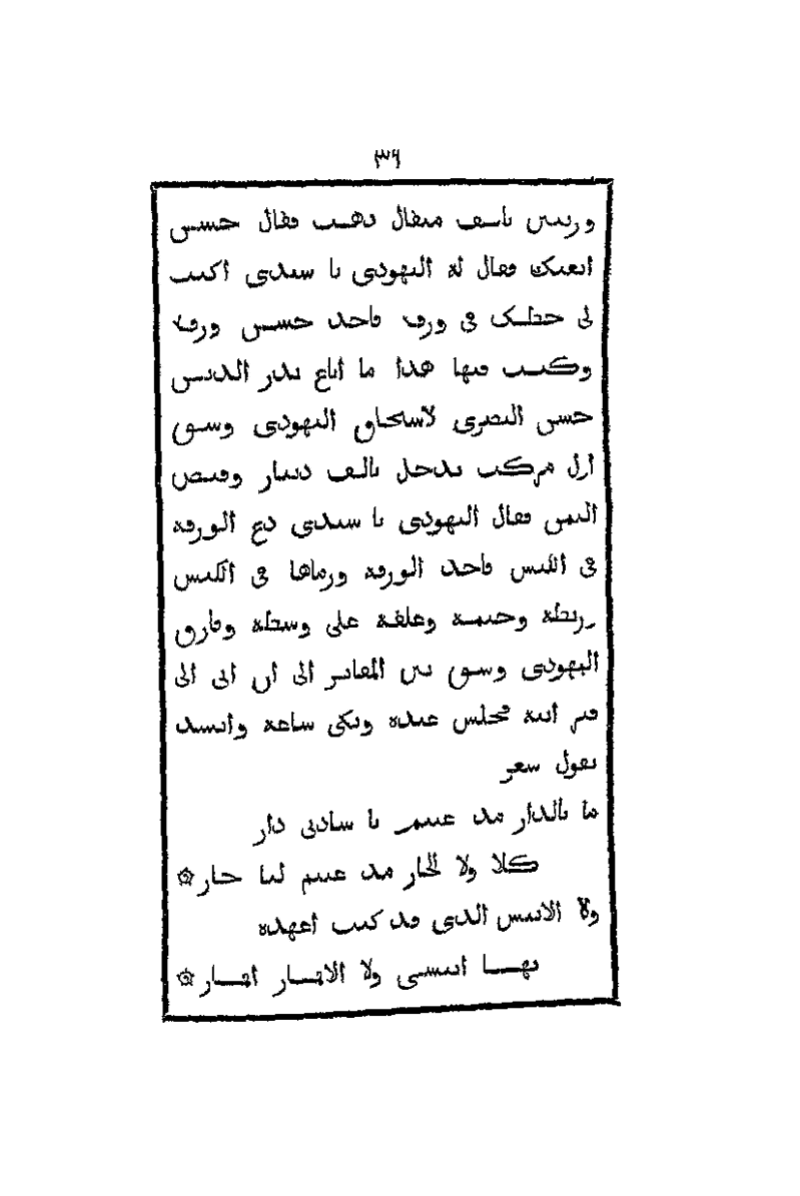 ٣٦
بالف مثقال ذهب فقال حسن
ابعتك فقال له اليهودي يا سيدي اكتب
لي خطك في ورقه فاخذ حسن ورقه
وكتب فيها هذا ما اباع بدر الدين
حسن البصري لاسحاق اليهودي وسق
اول مركب تدخل بالف دينار وقبض
الثمن فقال اليهودي يا سيدي دع الورقة
في الكيس فاخذ الورقة ورماها في الكيس
وربطه وختمه وعلقه على وسطه وفارق
اليهودي وسق بين المقابر الى ان اتى الى
قبر ابيه فجلس عنده وبكى ساعة وانشد
يقول شعر
ما بالدار مذ غبتم يا سادتي دار
كلا ولا الجار مذ غبتم لنا جار۞
ولا الانيس الذي قد كنت اعهده
بها انيسي ولا الانهار انهار۞